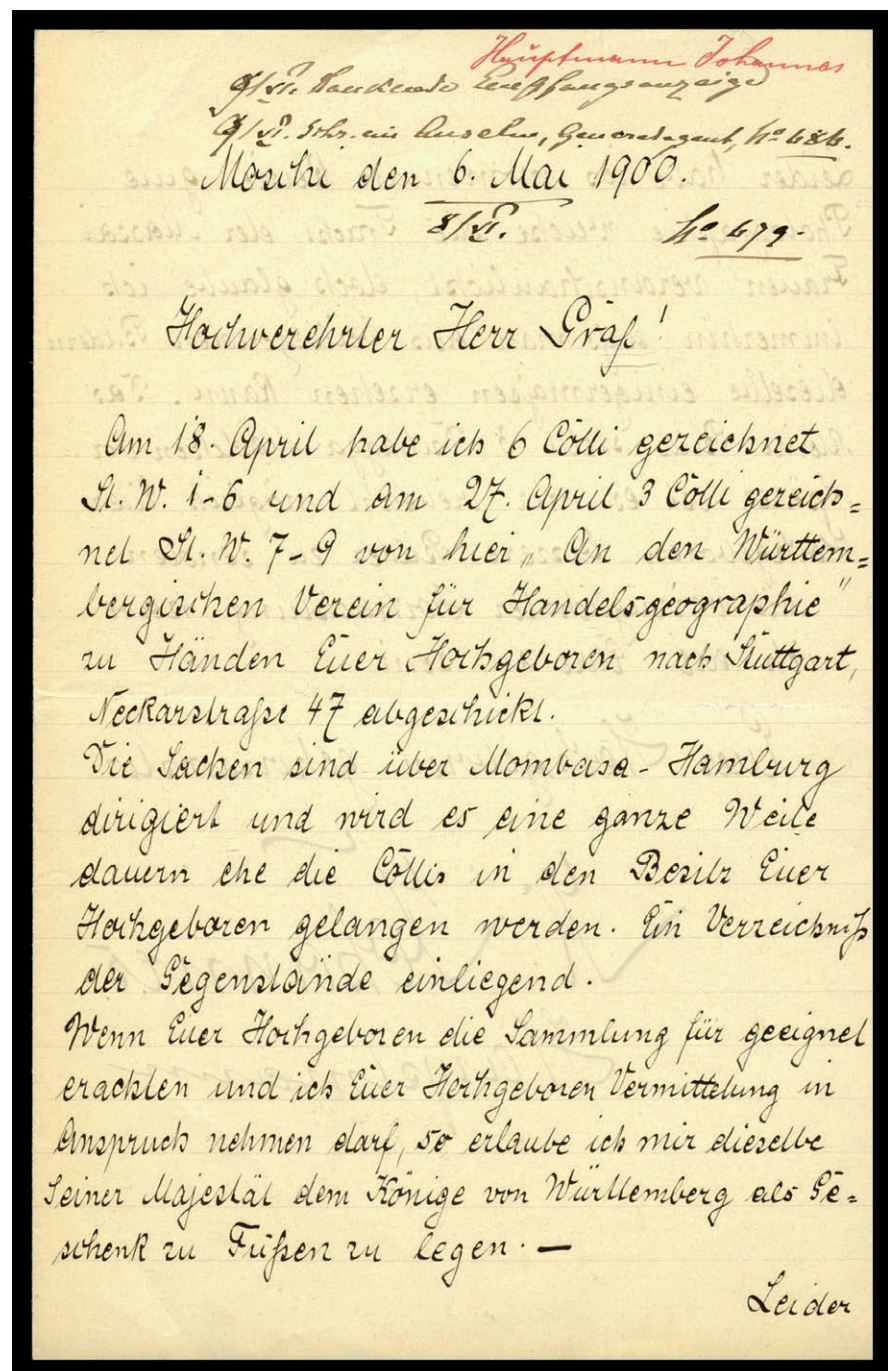 Hauptmann Johannes
9/VI. Dankende Empfangsanzeige
9/VI. Schr. an Anselm, Generalagent, No 484.
Moschi den 6. Mai 1900.
8/VI. No 479.
Hochverehrter Herr Graf!
Am 18. April habe ich 6 Cölli gezeichnet
St. W. 1-6 und am 27. April 3 Cölli gezeich=
net St. W. 7-9 von hier „An den Württem=
bergischen Verein für Handelsgeographie"
zu Händen Euer Hochgeboren nach Stuttgart,
Neckarstraße 47 abgeschickt.
Die Sachen sind über Mombasa-Hamburg
dirigiert und wird es eine ganze Weile
dauern ehe die Cöllis in den Besitz Euer
Hochgeboren gelangen werden. Ein Verzeichniß
der Gegenstände einliegend.
Wenn Euer Hochgeboren die Sammlung für geeignet
erachten und ich Euer Hochgeboren Vermittelung in
Anspruch nehmen darf, so erlaube ich mir dieselbe
Seiner Majestät dem Könige von Württemberg als Ge=
schenk zu Füßen zu legen. —
Leider